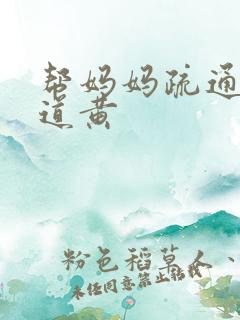 帮妈妈疏通
道黄
粉色稻草人、
未经同意禁止转载